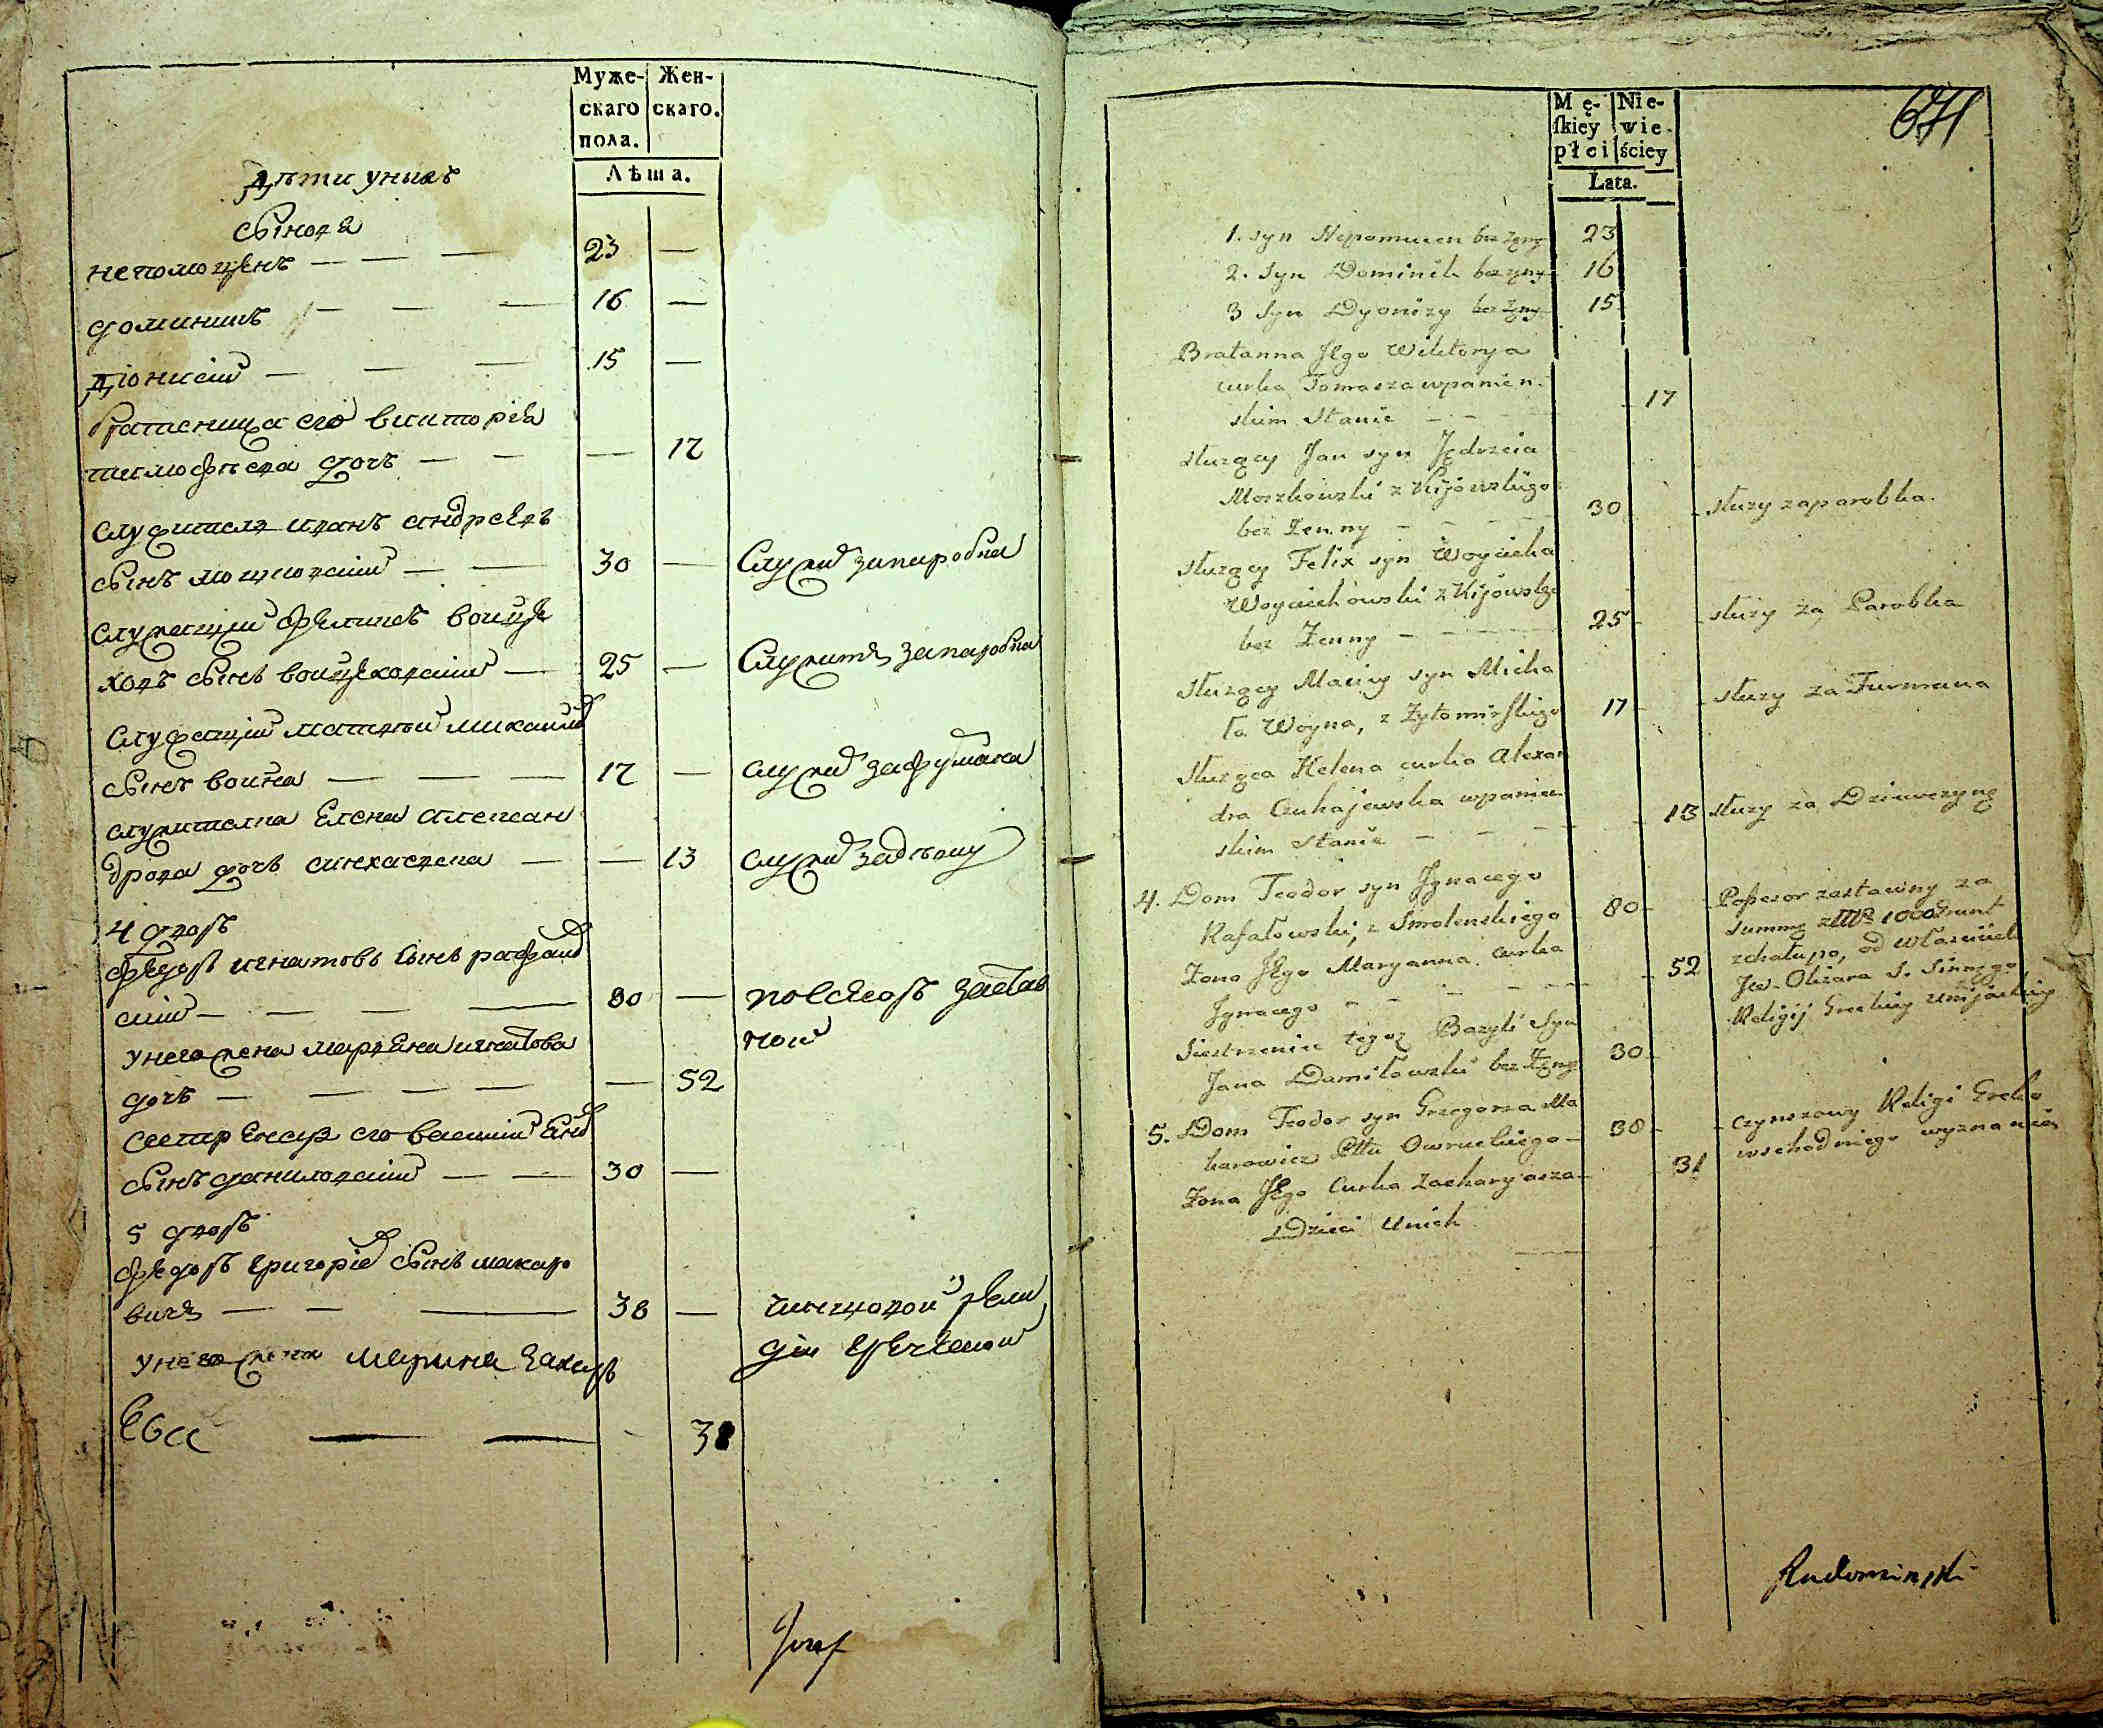 Муже- Жен-
скаго скаго.
пола.
Лѣта.
Дѣти у нихъ
сынове
непомуценъ — — — 23 —
доминикъ — — — 16 —
Діонисій — — — 15 —
братаница его викторія
тимофѣева дочь — — — 17
служитель иванъ андреевъ
сынъ мошковскій — — 30 — Служи запаробка
служащій феликсъ войце
ховъ сынъ войцеховскій — 25 — Служитъ запаробка
служащій матвѣй михайлов
сынъ война — — — 17 — служи зафурмана
служителка Елена Александ
дрова дочь — — 13 служи задѣвку
4 дворъ
федоръ игнатовъ сынъ рафалов
скій — — — — 80 — посесоръ застав
ной
у него жена маріанна игнатова
дочь — — — — — 52
сестренецъ его василій
сынъ даниловскій — — 30 —
5 дворъ
федоръ григорія сынъ макаро
вичъ — — — 38 — чиншовой рели
гіи греческой
у него жена марина захарь
ева — — - 31
Jozef
671
Mę- Nie-
ſkiey wie-
płci ściey
Lata.
1. syn Nepomucen bez żeny 23
2. Syn Dominik bez żeny 16
3 Syn Dyonizy bez żeny 15
Bratanna Jego Wiktorya
curka Tomasza w panien.
skim Stanie — — 17
służący Jan syn Jędrzeia
Moszkowski z Kijowskiego
bez Żenny — — 30 służy za parobka.
służący Felix syn Woyciecha
Woyciechowski z Kijowskgo
bez Żenny — — 25 służy za Parobka
służący Maciey syn Micha
ła Woyna, z Żytomirskiego 17 służy za Furmana
służąca Helena curka Alexan
dra w panien
skim stanie — — — 13 służy za Dziewczynę
4. Dom Teodor syn Jgnacego
Rafałowski, z Smolenskiego 80 Possesor zastawny za
summę 1000 grunt
z chałupą, od własciciela
Żona Jego Maryanna curka
Jgnacego — — — — 52
Jw. Olizara S.
Religij Greckiey Unijackiey
Siestrzeniec tegoż Bazyli Syn
Jana Daniłowski bez Żeny 30
5. Dom Teodor syn Grzegorza Ma
karowicz Pttu Owruckiego — 38 czynszowy Religi Grecko
wschodniego wyznania
Żona Jego Curka Zacharyasza — 31
Dzieci Unich
Rudominski